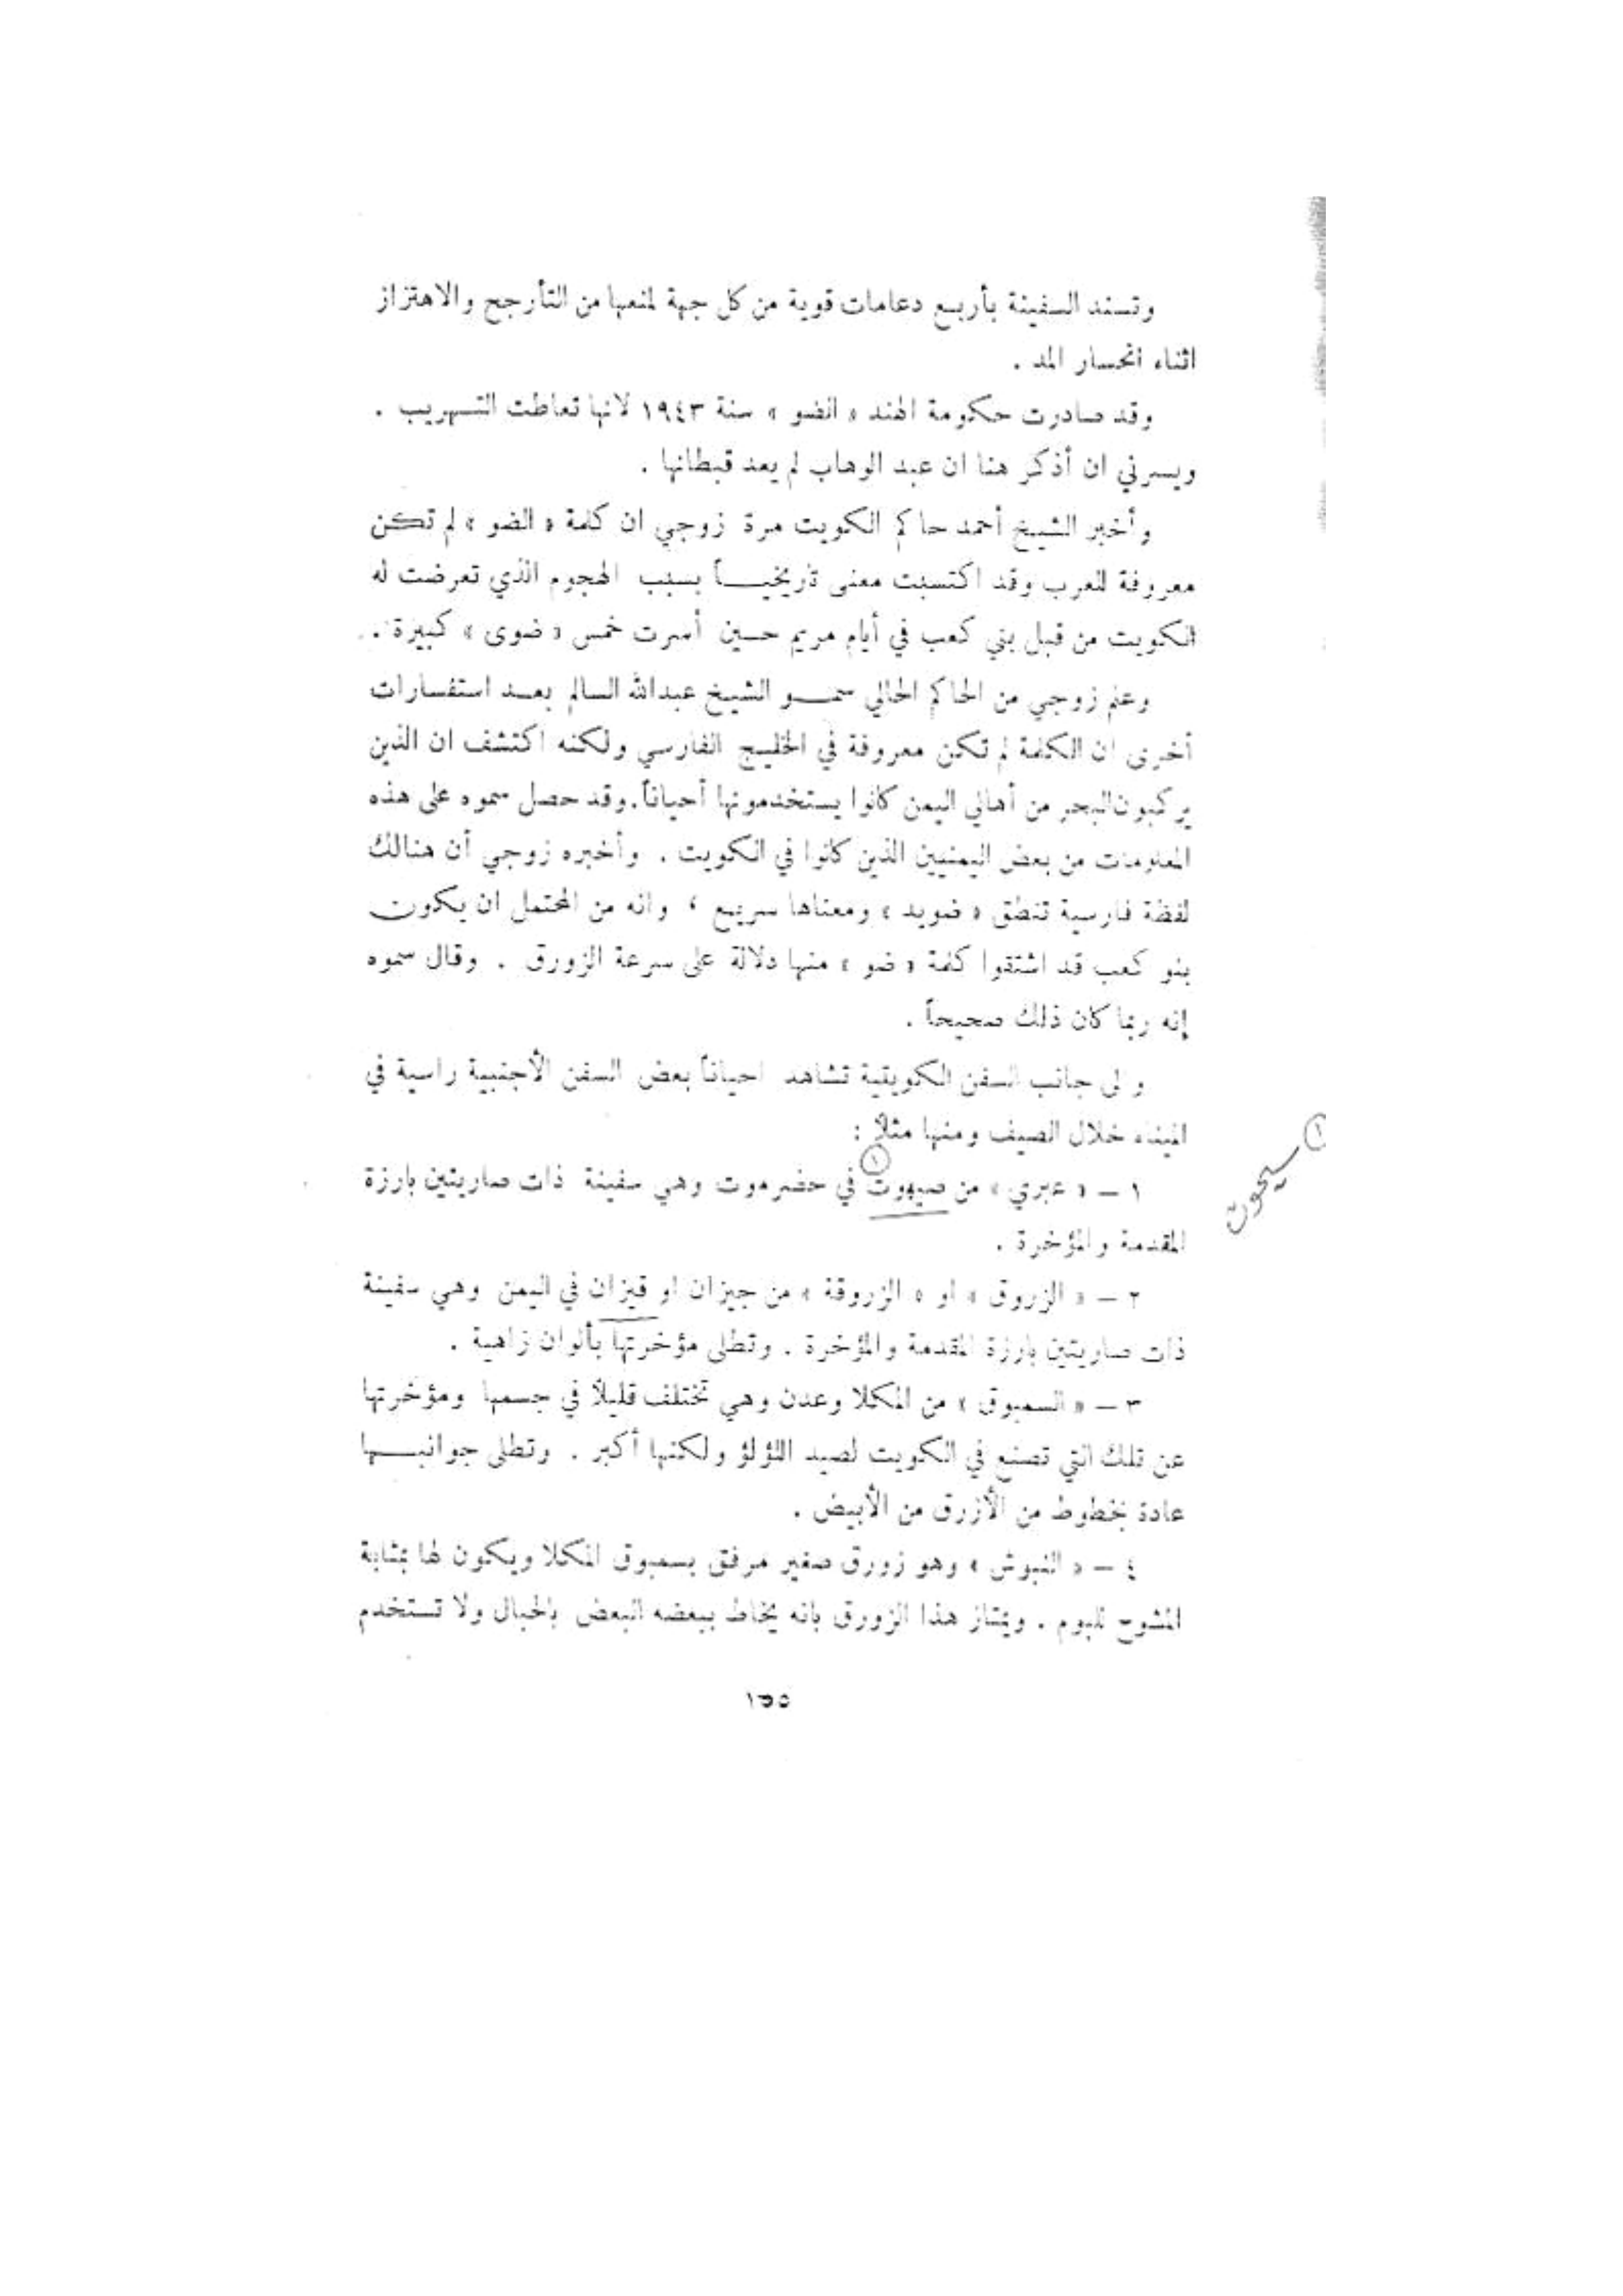 وتسند السفينة بأربع دعامات قوية من كل جهة لمنعها من التأرجح والاهتزاز
اثناء انحسار المد .
وقد صادرت حكومة الهند « الضو » سنة ١٩٤٣ لانها تعاطت التهريب .
ويسرني ان أذكر هنا ان عبد الوهاب لم يعد قبطانها .
وأخبر الشيخ أحمد حاكم الكويت مرة زوجي ان كلمة « الضو » لم تكن
معروفة للعرب وقد اكتسبت معنى تاريخياً بسبب الهجوم الذي تعرضت له
الكويت من قبل بني كعب في أيام مريم حسين أسرت خمس « ضوى » كبيرة .
وعلم زوجي من الحاكم الحالي سمو الشيخ عبدالله السالم بعد استفسارات
أخرى ان الكلمة لم تكن معروفة في الخليج الفارسي ولكنه اكتشف ان الذين
يركبون البحر من أهالي اليمن كانوا يستخدمونها أحياناً . وقد حصل سموه على هذه
المعلومات من بعض اليمنيين الذين كانوا في الكويت . وأخبره زوجي أن هنالك
لفظة فارسية تنطق « ضويد » ومعناها سريع ، وانه من المحتمل ان يكون
بنو كعب قد اشتقوا كلمة « ضو » منها دلالة على سرعة الزورق . وقال سموه
إنه ربما كان ذلك صحيحاً .
والى جانب السفن الكويتية تشاهد احياناً بعض السفن الأجنبية راسية في
الميناء خلال الصيف ومنها مثلاً :
١ – « عبري » من صيهوت (١) في حضرموت وهي سفينة ذات صاريتين بارزة
المقدمة والمؤخرة .
(١) سيحوت
٢ – « الزروق » او « الزروقة » من جيزان او قيزان في اليمن وهي سفينة
ذات صاريتين بارزة المقدمة والمؤخرة . وتطلى مؤخرتها بألوان زاهية .
٣ – « السمبوق » من المكلا وعدن وهي تختلف قليلاً في جسمها ومؤخرتها
عن تلك التي تصنع في الكويت لصيد اللؤلؤ ولكنها أكبر . وتطلى جوانبها
عادة بخطوط من الأزرق من الأبيض .
٤ – « وهو زورق صغير مرفق بسمبوق المكلا ويكون لها بمثابة
المشوح للبوم . ويمتاز هذا الزورق بانه يخاط ببعضه البعض بالحبال ولا تستخدم
١٣٥